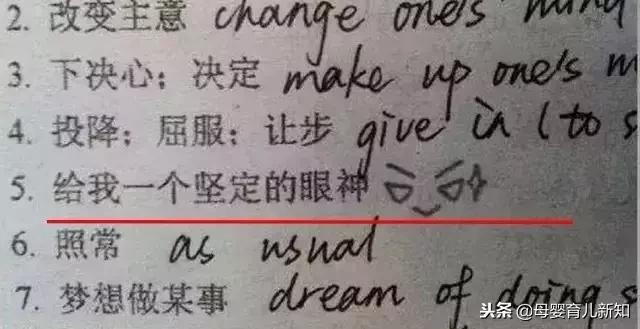 2. 改变主意 change one's mind
3. 下决心；决定 make up one's m
4. 投降；屈服；让步 give in (to s
5. 给我一个坚定的眼神
6. 照常 as usual
7. 梦想做某事 dream of doing s
头条 @母婴育儿新知